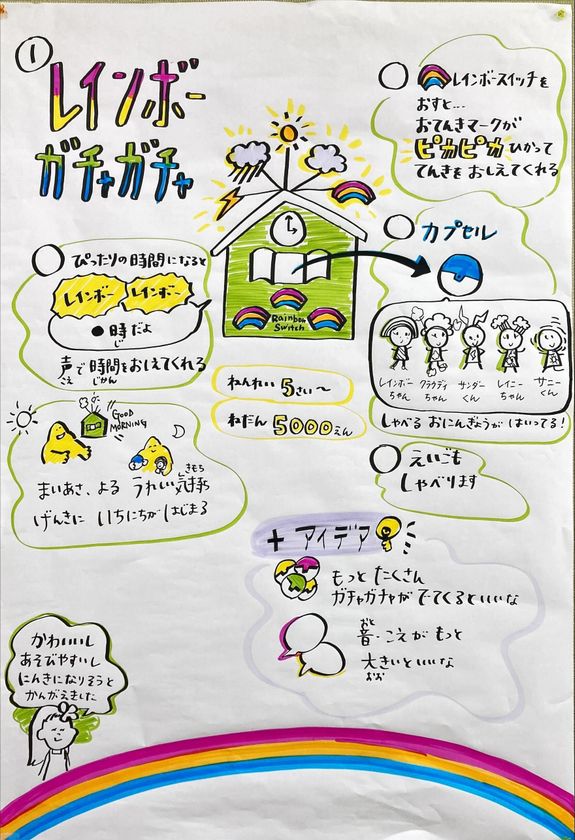 ①
レインボー
ガチャガチャ
レインボースイッチを
おすと…
おてんきマークが
ピカピカ ひかって
てんきを おしえてくれる
カプセル
ぴったりの時間になると
レインボー レインボー
●時だよ
じ
声で時間をおしえてくれる
こえ じかん
Rainbow
Switch
レインボー
ちゃん
クラウディ
ちゃん
サンダー
くん
レイニー
ちゃん
サニー
くん
しゃべる おにんぎょうが はいってる!
ねんれい 5さい〜
ねだん 5000えん
GOOD
MORNING
きもち
まいあさ、よる うれしい気持ち
げんきに いちにちがはじまる
えいごも
しゃべります
+ アイデア
もっと たくさん
ガチャガチャが でてくるといいな
おと
音・こえが もっと
大きいといいな
おお
かわいいし
あそびやすいし
にんきになりそうと
かんがえました